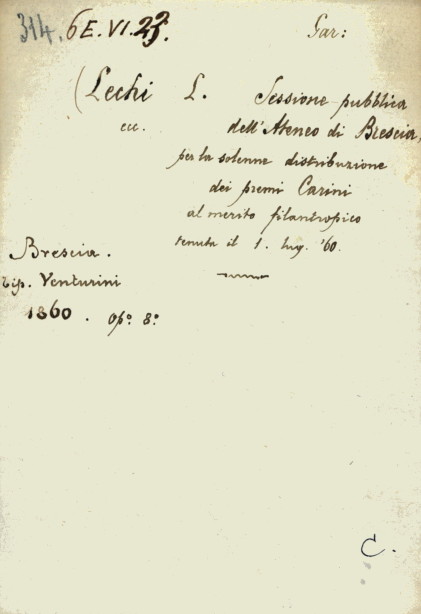 314. 6E.VI. Gar:
(Lechi L. Sessione pubblica
ecc. dell'Ateneo di Brescia,
per la solenne distribuzione
dei premi Carini
al merito filantropico
tenuta il 1. lug. '60.
Brescia.
tip. Venturini
1860. opº. 8º
C.